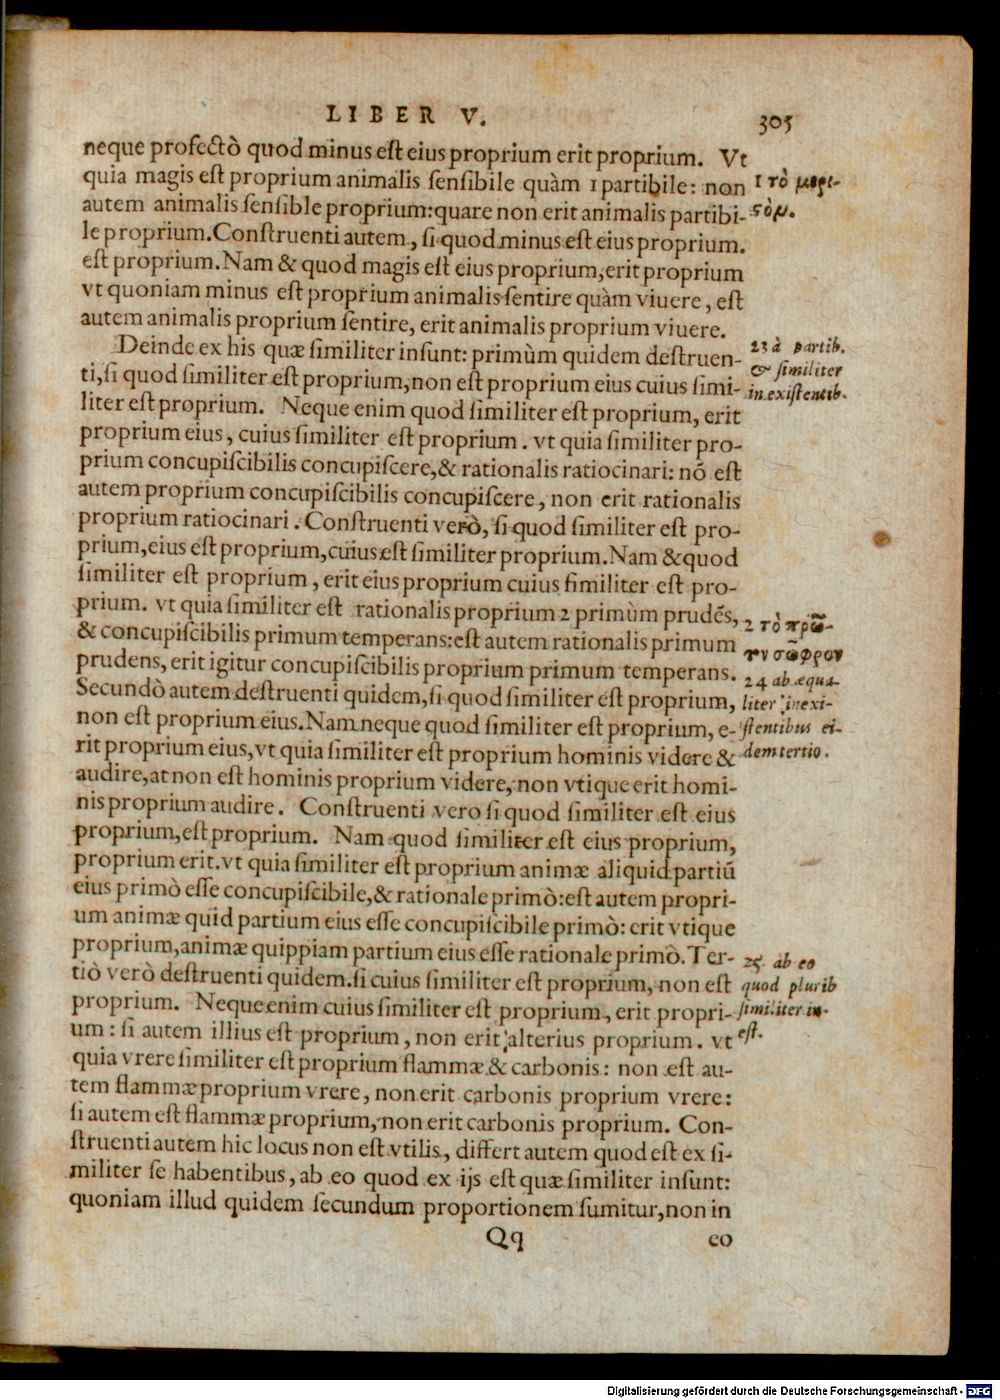 LIBER V.
305
neque profectò quod minus est eius proprium erit proprium. Vt
quia magis est proprium animalis sensibile quàm 1 partibile: non
autem animalis sensible proprium: quare non erit animalis partibi-
le proprium. Construenti autem, si quod minus est eius proprium.
est proprium. Nam & quod magis est eius proprium, erit proprium
vt quoniam minus est proprium animalis sentire quàm viuere, est
autem animalis proprium sentire, erit animalis proprium viuere.
Deinde ex his quæ similiter insunt: primùm quidem destruen-
ti, si quod similiter est proprium, non est proprium eius cuius simi-
liter est proprium. Neque enim quod similiter est proprium, erit
proprium eius, cuius similiter est proprium. vt quia similiter pro-
prium concupiscibilis concupiscere, & rationalis ratiocinari: nõ est
autem proprium concupiscibilis concupiscere, non erit rationalis
proprium ratiocinari. Construenti verò, si quod similiter est pro-
prium, eius est proprium, cuius est similiter proprium. Nam & quod
similiter est proprium, erit eius proprium cuius similiter est pro-
prium. vt quia similiter est rationalis proprium 2 primùm prudẽs,
& concupiscibilis primum temperans: est autem rationalis primum
prudens, erit igitur concupiscibilis proprium primum temperans.
Secundò autem destruenti quidem, si quod similiter est proprium,
non est proprium eius. Nam neque quod similiter est proprium, e-
rit proprium eius, vt quia similiter est proprium hominis videre &
audire, at non est hominis proprium videre, non vtique erit homi-
nis proprium audire. Construenti vero si quod similiter est eius
proprium, est proprium. Nam quod similiter est eius proprium,
proprium erit. vt quia similiter est proprium animæ aliquid partiũ
eius primò esse concupiscibile, & rationale primò: est autem propri-
um animæ quid partium eius esse concupiscibile primò: erit vtique
proprium, animæ quippiam partium eius esse rationale primò. Ter-
tiò verò destruenti quidem. si cuius similiter est proprium, non est
proprium. Neque enim cuius similiter est proprium, erit propri-
um: si autem illius est proprium, non erit alterius proprium. vt
quia vrere similiter est proprium flammæ & carbonis: non est au-
tem flammæ proprium vrere, non erit carbonis proprium vrere:
si autem est flammæ proprium, non erit carbonis proprium. Con-
struenti autem hic locus non est vtilis, differt autem quod est ex si-
militer se habentibus, ab eo quod ex ijs est quæ similiter insunt:
quoniam illud quidem secundum proportionem sumitur, non in
Qq
eo
1 τὸ μερι-
στὸμ.
23 à partib.
& similiter
inexistentib.
2 τὸ πρῶ-
τον σῶφρον
24 ab æqua-
liter inexi-
stentibus ei-
dem tertio.
25. ab eo
quod plurib
similiter in-
est.
Digitalisierung gefördert durch die Deutsche Forschungsgemeinschaft - DFG